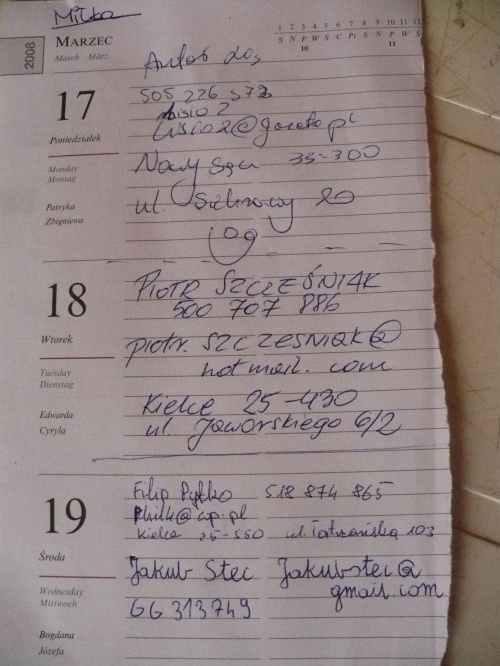 Milka
2008
MARZEC
March März
1 2 3 4 5 6 7 8 9 10 11 12
S N P W Ś C Pt S N P W Ś
10 11
17
505 226 573
Poniedziałek
Monday
Montag
Nowy Sącz 33-300
Patryka
Zbigniewa
ul. 20
18
PIOTR SZCZEŚNIAK
500 707 886
Wtorek
piotr.SZCZESNIAK@
hotmail.com
Tuesday
Dienstag
Kielce 25-430
Edwarda
Cyryla
ul. Jaworskiego 6/2
19
Filip Pytko 518 874 865
Philk@wp.pl
Kielce 25-550 ul. Tatrzańska 103
Środa
Jakub Stec Jakubstec@
gmail.com
Wednesday
Mittwoch
66 313 749
Bogdana
Józefa